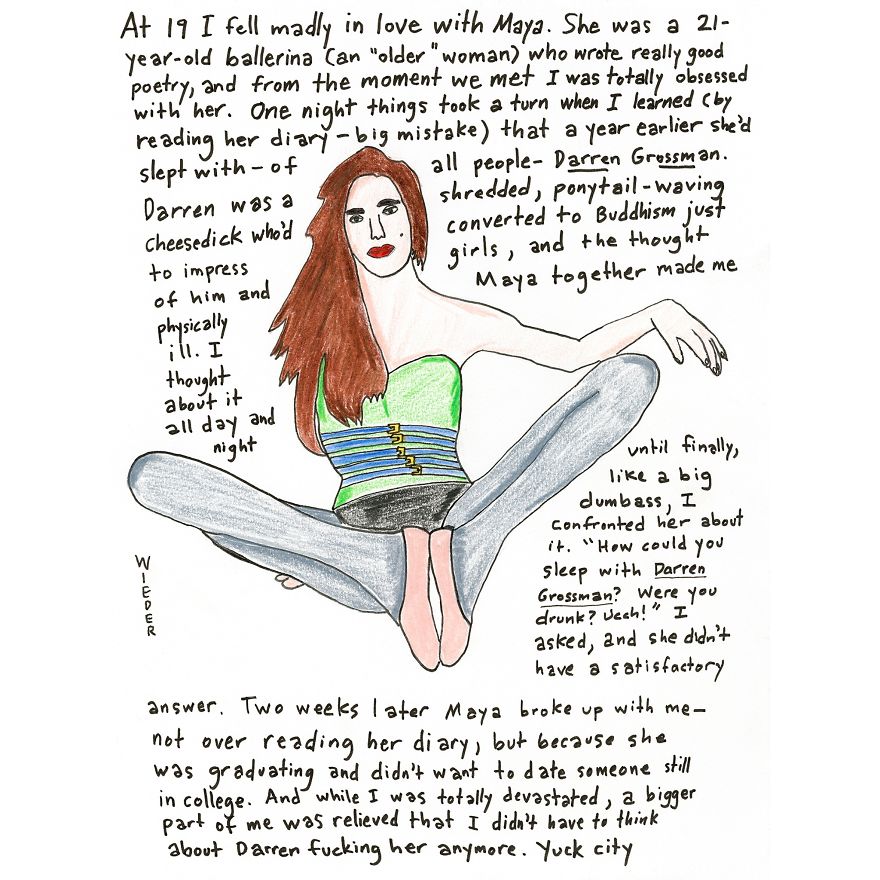 At 19 I fell madly in love with Maya. She was a 21-
year-old ballerina (an "older" woman) who wrote really good
poetry, and from the moment we met I was totally obsessed
with her. One night things took a turn when I learned (by
reading her diary – big mistake) that a year earlier she'd
slept with – of all people – Darren Grossman.
Darren was a shredded, ponytail-waving
cheesedick who'd converted to Buddhism just
to impress girls, and the thought
of him and Maya together made me
physically
ill. I
thought
about it
all day and
night
until finally,
like a big
dumbass, I
confronted her about
it. "How could you
sleep with Darren
Grossman? Were you
drunk? Uech!" I
asked, and she didn't
have a satisfactory
answer. Two weeks later Maya broke up with me–
not over reading her diary, but because she
was graduating and didn't want to date someone still
in college. And while I was totally devastated, a bigger
part of me was relieved that I didn't have to think
about Darren fucking her anymore. Yuck city
WIEDER